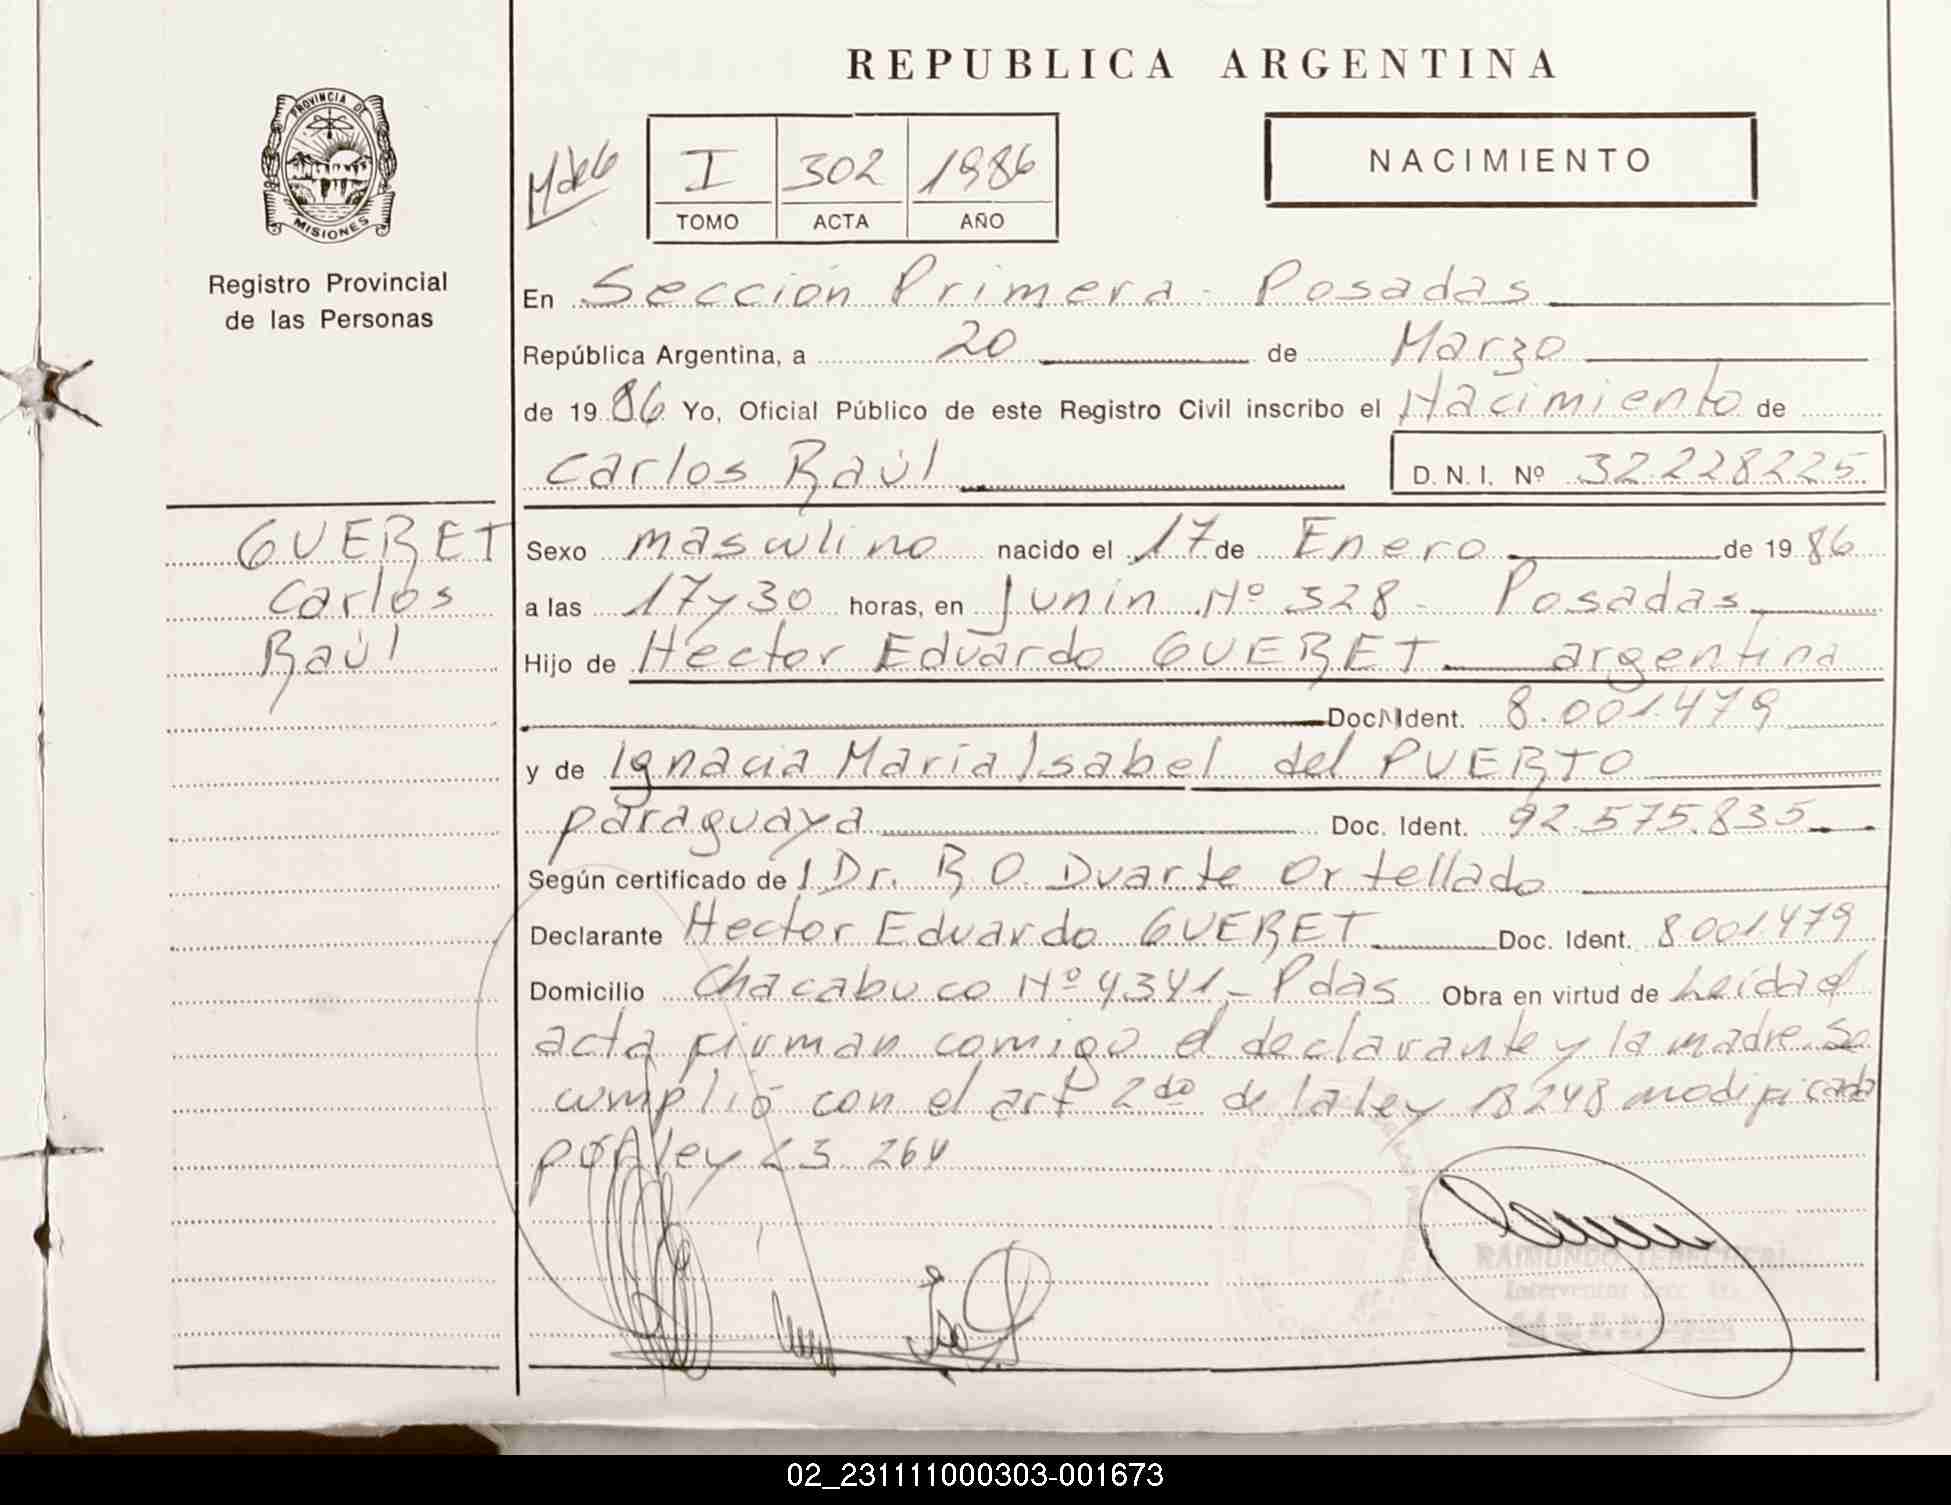 REPUBLICA ARGENTINA
PROVINCIA DE
MISIONES
Registro Provincial
de las Personas
I 302 1986
TOMO ACTA AÑO
NACIMIENTO
En Sección Primera - Posadas
República Argentina, a 20 de Marzo
de 1986 Yo, Oficial Público de este Registro Civil inscribo el Nacimiento de
Carlos Raúl D.N.I. Nº 32.228225
GUERET
Carlos
Raúl
Sexo masculino nacido el 17 de Enero de 1986
a las 17 y 30 horas, en Junín Nº 328 - Posadas
Hijo de Hector Eduardo GUERET argentina
Doc. Ident. 8.001.479
y de Ignacia María Isabel del PUERTO
paraguaya Doc. Ident. 92.575.835
Según certificado del Dr. R.O. Duarte Ortellado
Declarante Hector Eduardo GUERET Doc. Ident. 8.001.479
Domicilio Chacabuco Nº 4341 - Pdas Obra en virtud de Leída el
acta firman comigo el declarante y la madre. Se
cumplió con el art 2do de la ley 18248 modificada
por ley 23.264
RAIMUNDO
02_231111000303-001673